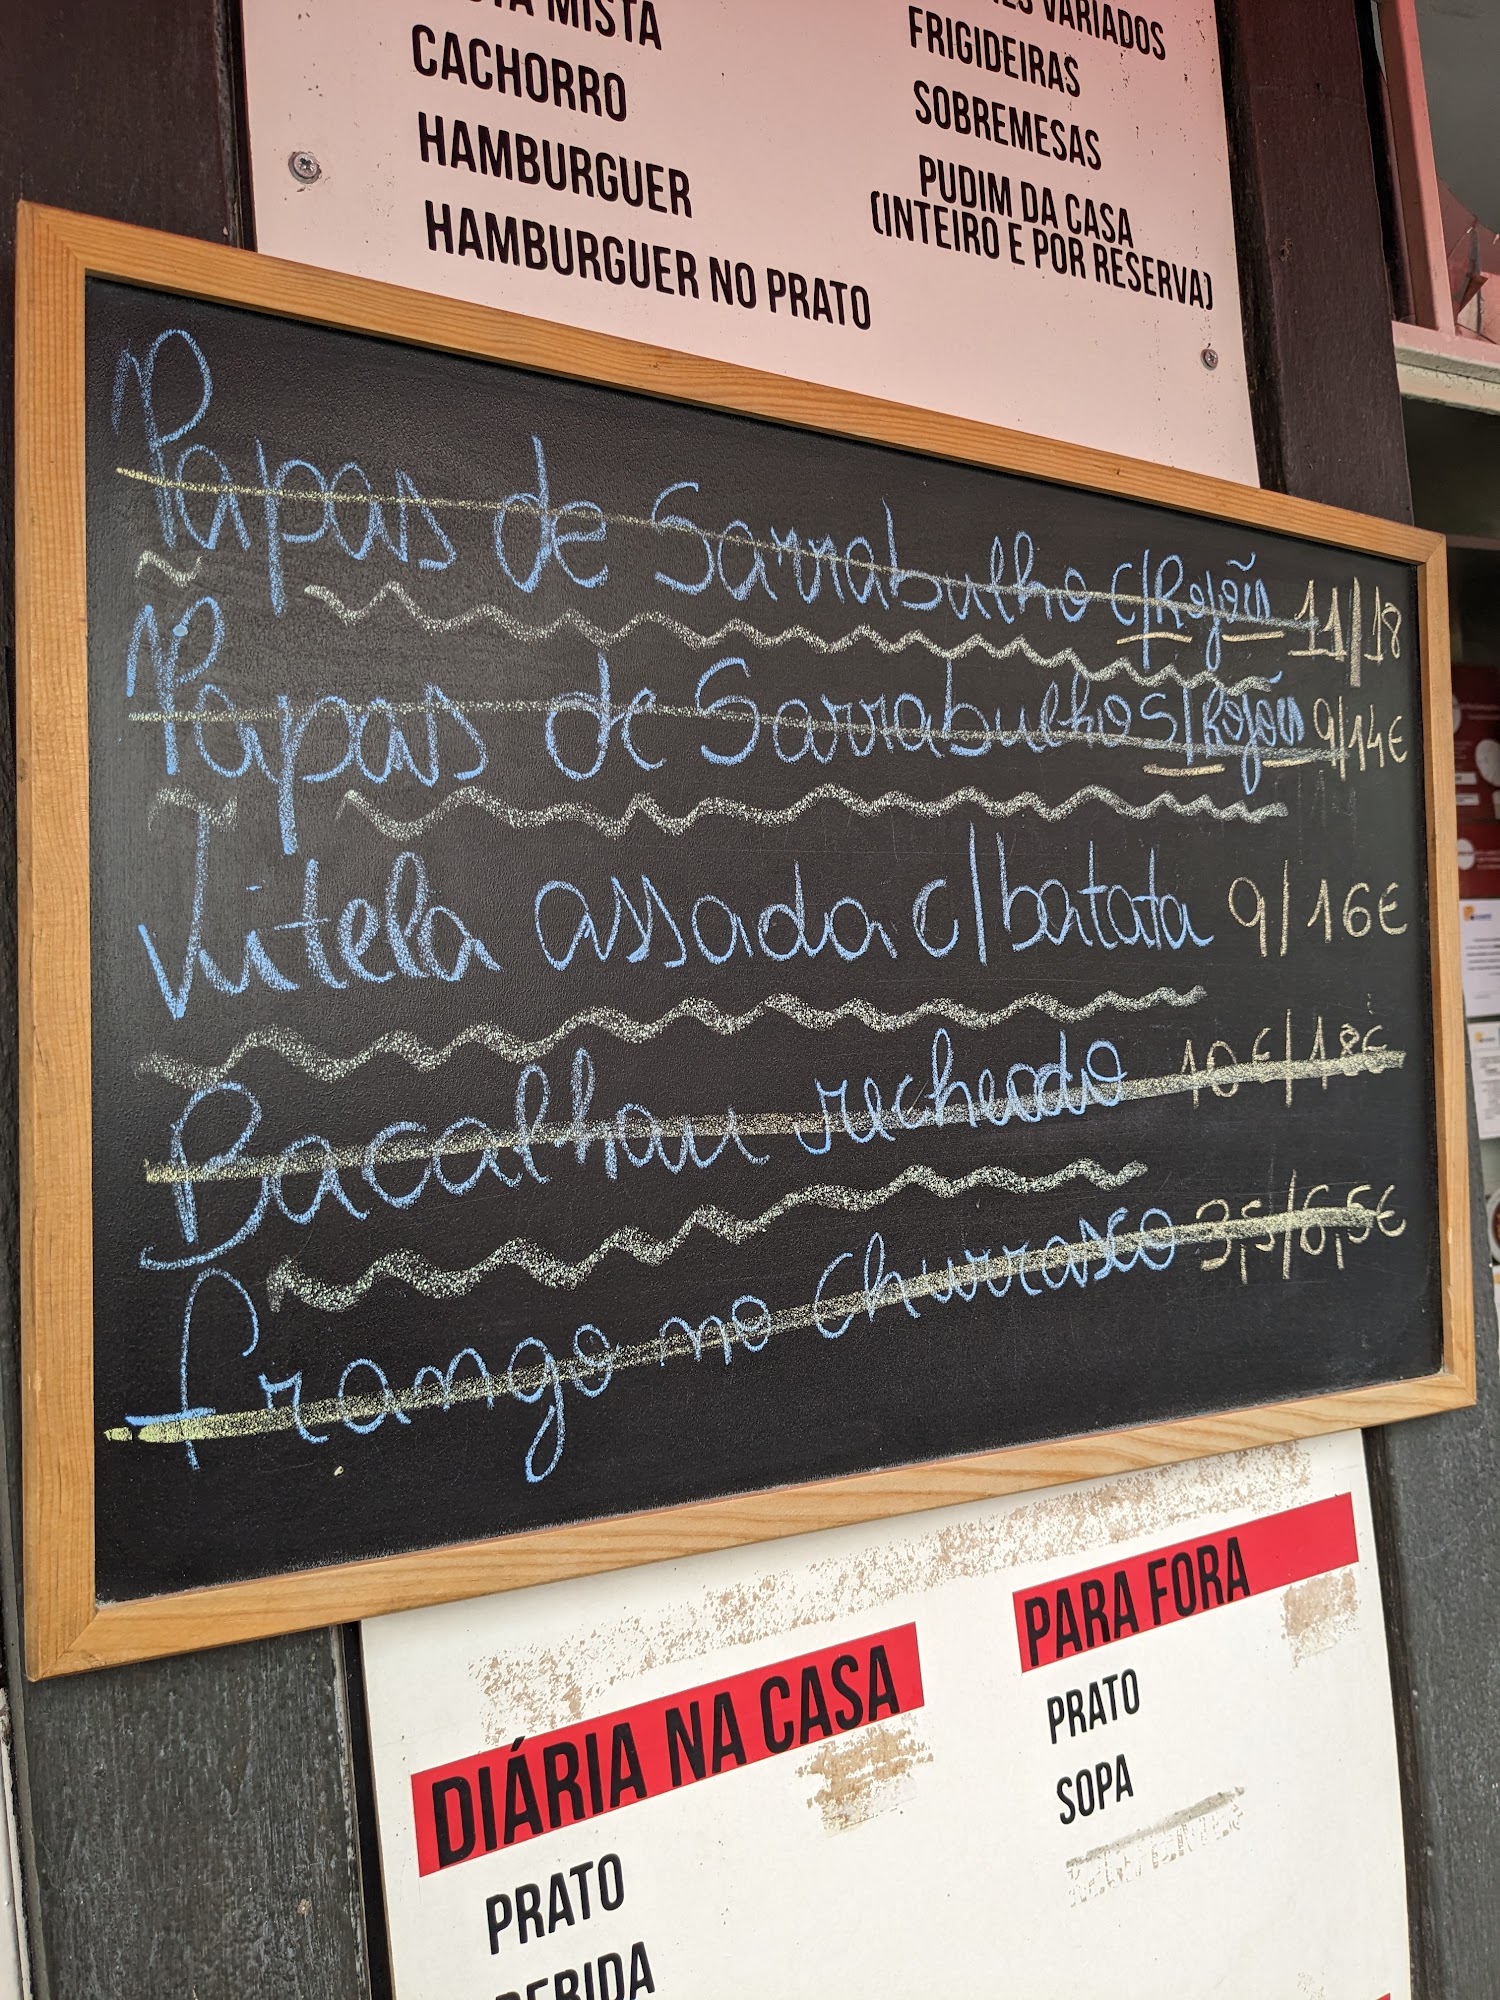 MISTA
CACHORRO
HAMBURGUER
HAMBURGUER NO PRATO
VARIADOS
FRIGIDEIRAS
SOBREMESAS
PUDIM DA CASA
(INTEIRO E POR RESERVA)
Papas de Sarrabulho c/Rojões 11/18
Papas de Sarrabulho s/Rojões 9/14€
Vitela assada c/batata 9/16€
Bacalhau recheado 10€/18€
Frango no Churrasco 3,5/6,5€
DIÁRIA NA CASA
PRATO
BEBIDA
PARA FORA
PRATO
SOPA